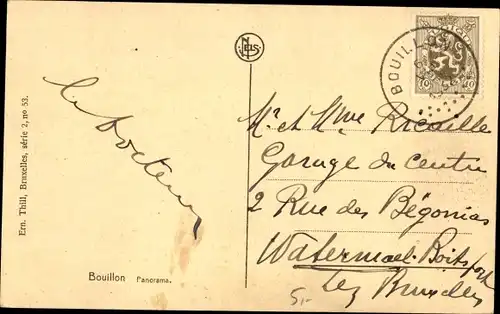 Ern. Thill, Bruxelles, série 2, no 53.
NELS
BOUILLON
10 10
le docteur
Mr et Mme Recaille
Garage du centre
2 Rue des Bégonias
Watermael-Boitsfort
lez Bruxelles
Bouillon Panorama.
5,-